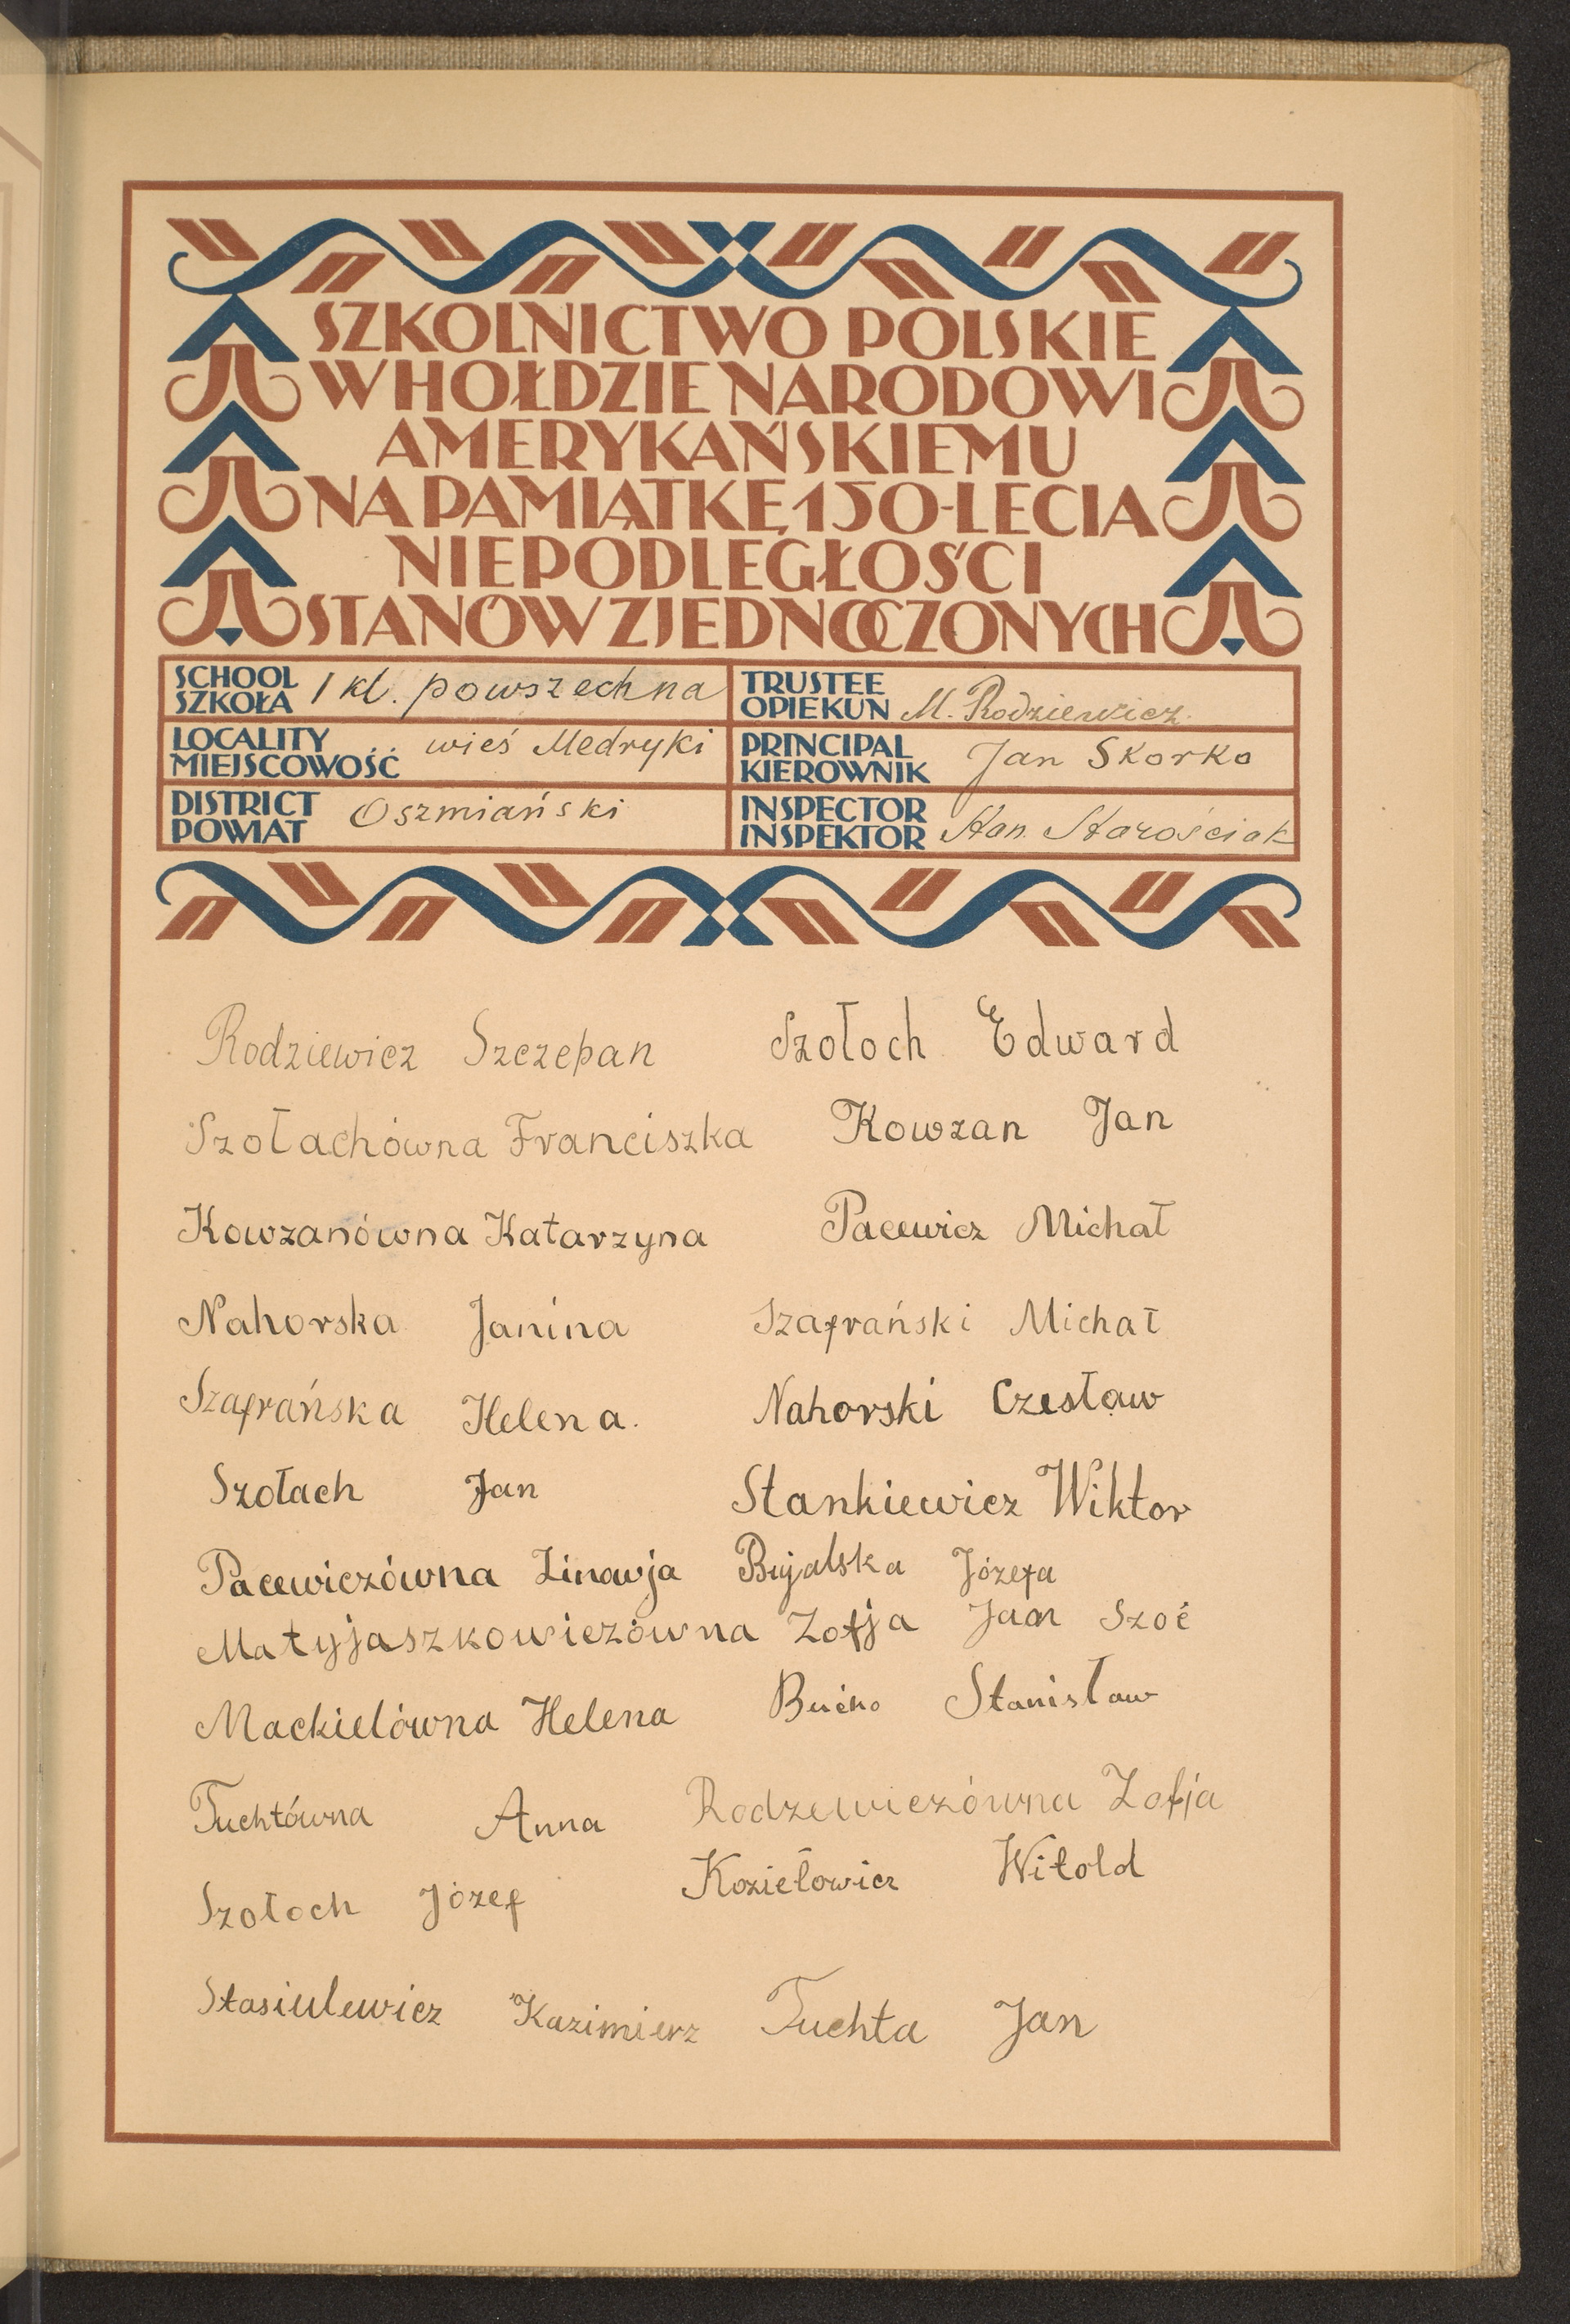 SZKOLNICTWO POLSKIE
W HOŁDZIE NARODOWI
AMERYKAŃSKIEMU
NA PAMIĄTKĘ 150-LECIA
NIEPODLEGŁOŚCI
STANÓW ZJEDNOCZONYCH
SCHOOL
SZKOŁA 1 kl. powszechna
TRUSTEE
OPIEKUN M. Rodziewicz
LOCALITY
MIEJSCOWOŚĆ wieś Medryki
PRINCIPAL
KIEROWNIK Jan Skorko
DISTRICT
POWIAT Oszmiański
INSPECTOR
INSPEKTOR Stan. Starościak
Rodziewicz Szczepan Szołoch Edward
Szołachówna Franciszka Kowzan Jan
Kowzanówna Katarzyna Pacewicz Michał
Nahorska Janina Szafrański Michał
Szafrańska Helena. Nahorski Czesław
Szołach Jan Stankiewicz Wiktor
Pacewiczówna Zinawja Bujalska Józefa
Matyjaszkowiczówna Zofja Jan Szoć
Mackielówna Helena Bućko Stanisław
Tuchtówna Anna Rodzewiczówna Zofja
Szołoch Józef Koziełowicz Witold
Stasiulewicz Kazimierz Tuchta Jan